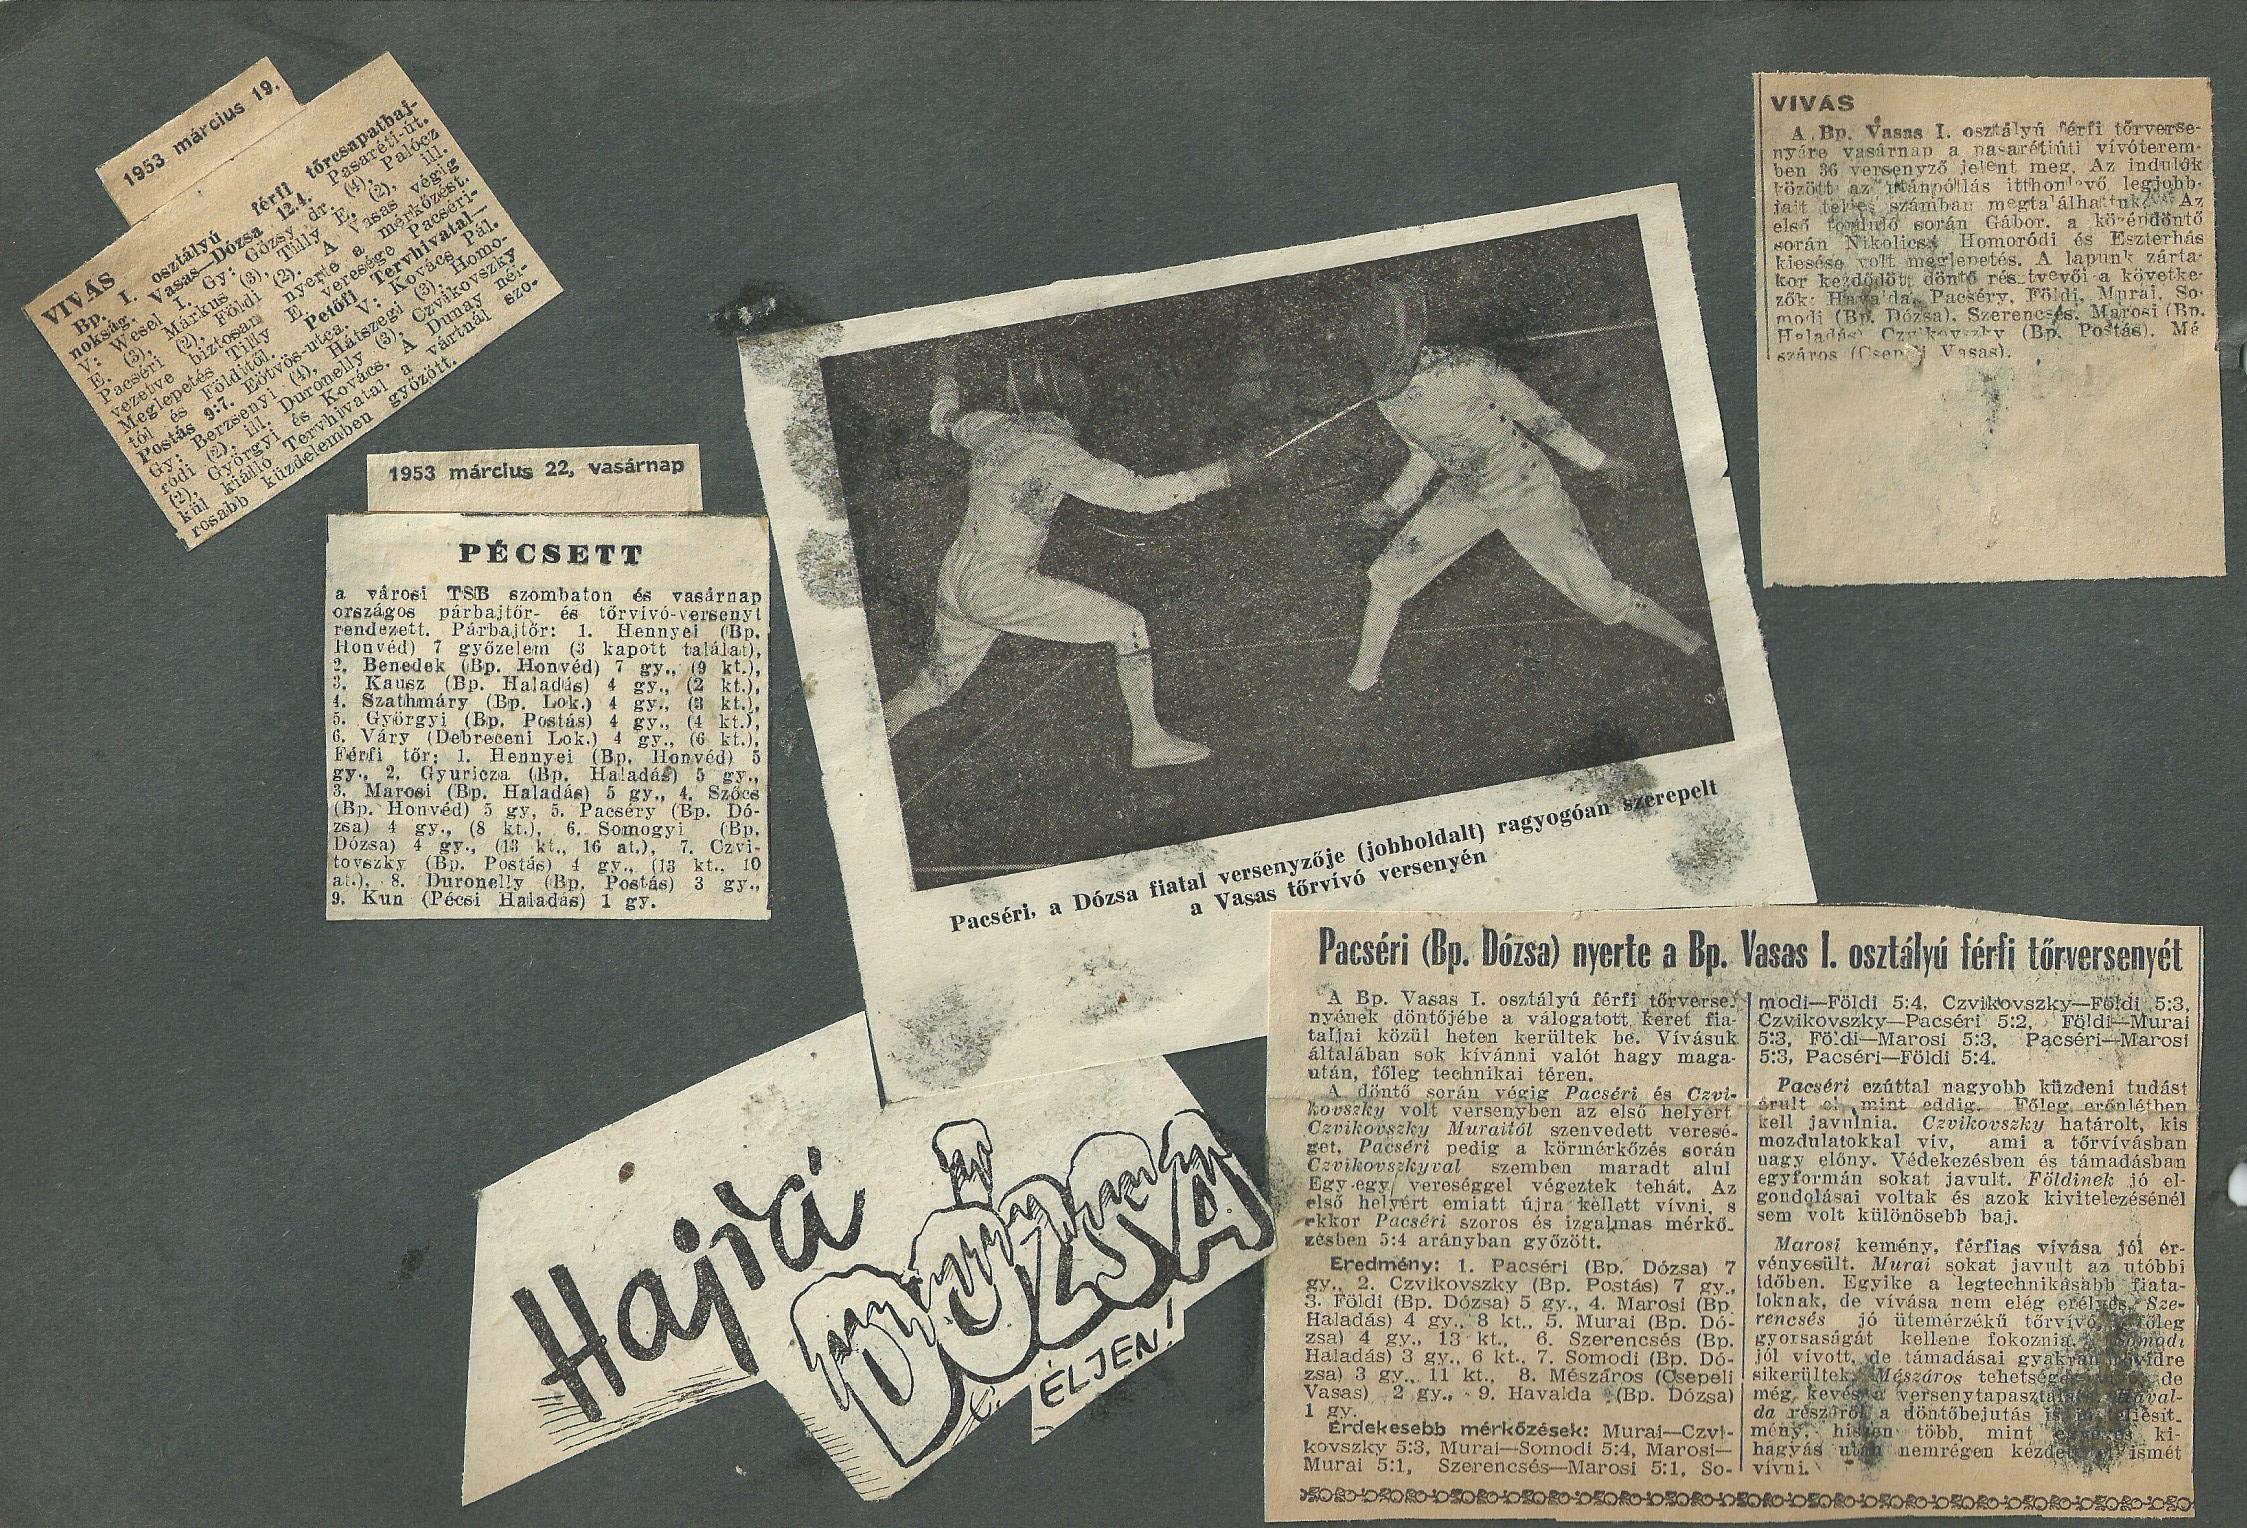 1953 március 19.
VIVÁS
Bp. I. osztályú férfi tőrcsapatbaj-
nokság. Vasas—Dózsa 12.4. Pasaréti-út.
V: Wesel I. Gy: Gózsy dr. (4), Palócz
E. (3), Márkus (3), Tilly E. (2), ill.
Pacséri (2), Földi (2). A Vasas végig
vezetve biztosan nyerte a mérkőzést.
Meglepetés Tilly E. veresége Pacséri-
től és Földitől. Petőfi Tervhivatal—
Postás 9:7. Eötvös-utca. V: Kovács Pál.
Gy: Berzsenyi (4), Hátszegi (3), Homo-
ródi (2), ill. Duronelly (3), Czvikovszky
(2), Györgyi és Kovács. A Dunay nél-
kül kiálló Tervhivatal a vártnál szo-
rosabb küzdelemben győzött.
1953 március 22, vasárnap
PÉCSETT
a városi TSB szombaton és vasárnap
országos párbajtőr- és tőrvívó-versenyt
rendezett. Párbajtőr: 1. Hennyei (Bp.
Honvéd) 7 győzelem (3 kapott találat),
2. Benedek (Bp. Honvéd) 7 gy., (9 kt.),
3. Kausz (Bp. Haladás) 4 gy., (2 kt.),
4. Szathmáry (Bp. Lok.) 4 gy., (3 kt.),
5. Györgyi (Bp. Postás) 4 gy., (4 kt.),
6. Váry (Debreceni Lok.) 4 gy., (6 kt.),
Férfi tőr: 1. Hennyei (Bp. Honvéd) 5
gy., 2. Gyuricza (Bp. Haladás) 5 gy.,
3. Marosi (Bp. Haladás) 5 gy., 4. Szőcs
(Bp. Honvéd) 5 gy, 5. Pacséry (Bp. Dó-
zsa) 4 gy., (8 kt.), 6. Somogyi (Bp.
Dózsa) 4 gy., (13 kt., 16 at.), 7. Czvi-
tovszky (Bp. Postás) 4 gy., (13 kt., 10
at.), 8. Duronelly (Bp. Postás) 3 gy.,
9. Kun (Pécsi Haladás) 1 gy.
Pacséri, a Dózsa fiatal versenyzője (jobboldalt) ragyogóan szerepelt
a Vasas tőrvívó versenyén
VIVÁS
A Bp. Vasas I. osztályú férfi tőrverse-
nyére vasárnap a pasarétiúti vívóterem-
ben 36 versenyző jelent meg. Az indulók
között az utánpótlás itthonlevő legjobb-
jait teljes számban megtalálhattuk. Az
első forduló során Gábor, a középdöntő
során Nikolics, Homoródi és Eszterhás
kiesése volt meglepetés. A lapunk zárta-
kor kezdődött döntő résztvevői a követke-
zők: Havalda, Pacséry, Földi, Murai, So-
modi (Bp. Dózsa). Szerencsés, Marosi (Bp.
Haladás) Czvikovszky (Bp. Postás). Mé
száros (Csepeli Vasas).
Hajrá
DÓZSA
ÉLJEN!
Pacséri (Bp. Dózsa) nyerte a Bp. Vasas I. osztályú férfi tőrversenyét
A Bp. Vasas I. osztályú férfi tőrverse.
nyének döntőjébe a válogatott keret fia-
taljai közül heten kerültek be. Vívásuk
általában sok kívánni valót hagy maga-
után, főleg technikai téren.
A döntő során végig Pacséri és Czvi-
kovszky volt versenyben az első helyért
Czvikovszky Muraitól szenvedett veresé-
get, Pacséri pedig a körmérkőzés során
Czvikovszkyval szemben maradt alul
Egy-egy vereséggel végeztek tehát. Az
első helyért emiatt újra kellett vívni, s
ekkor Pacséri szoros és izgalmas mérkő-
zésben 5:4 arányban győzött.
Eredmény: 1. Pacséri (Bp. Dózsa) 7
gy., 2. Czvikovszky (Bp. Postás) 7 gy.,
3. Földi (Bp. Dózsa) 5 gy., 4. Marosi (Bp.
Haladás) 4 gy., 8 kt., 5. Murai (Bp. Dó-
zsa) 4 gy., 13 kt., 6. Szerencsés (Bp.
Haladás) 3 gy., 6 kt., 7. Somodi (Bp. Dó-
zsa) 3 gy., 11 kt., 8. Mészáros (Csepeli
Vasas) 2 gy., 9. Havalda (Bp. Dózsa)
1 gy.
Érdekesebb mérkőzések: Murai—Czvi-
kovszky 5:3, Murai—Somodi 5:4, Marosi—
Murai 5:1, Szerencsés—Marosi 5:1, So-
modi—Földi 5:4, Czvikovszky—Földi 5:3,
Czvikovszky—Pacséri 5:2, Földi—Murai
5:3, Földi—Marosi 5:3, Pacséri—Marosi
5:3, Pacséri—Földi 5:4.
Pacséri ezúttal nagyobb küzdeni tudást
árult el, mint eddig. Főleg erőnlétben
kell javulnia. Czvikovszky határolt, kis
mozdulatokkal vív, ami a tőrvívásban
nagy előny. Védekezésben és támadásban
egyformán sokat javult. Földinek jó el-
gondolásai voltak és azok kivitelezésénél
sem volt különösebb baj.
Marosi kemény, férfias vívása jól ér-
vényesült. Murai sokat javult az utóbbi
időben. Egyike a legtechnikásabb fiata-
loknak, de vívása nem elég erélyes. Sze-
rencsés jó ütemérzékű tőrvívó, főleg
gyorsaságát kellene fokoznia. Somodi
jól vívott, de támadásai gyakran rövidre
sikerültek. Mészáros tehetséges de
még kevés a versenytapasztalata. Haval-
da részéről a döntőbejutás is jó teljesít-
mény, hiszen több, mint ki-
hagyás után nemrégen kezdett el ismét
vívni.